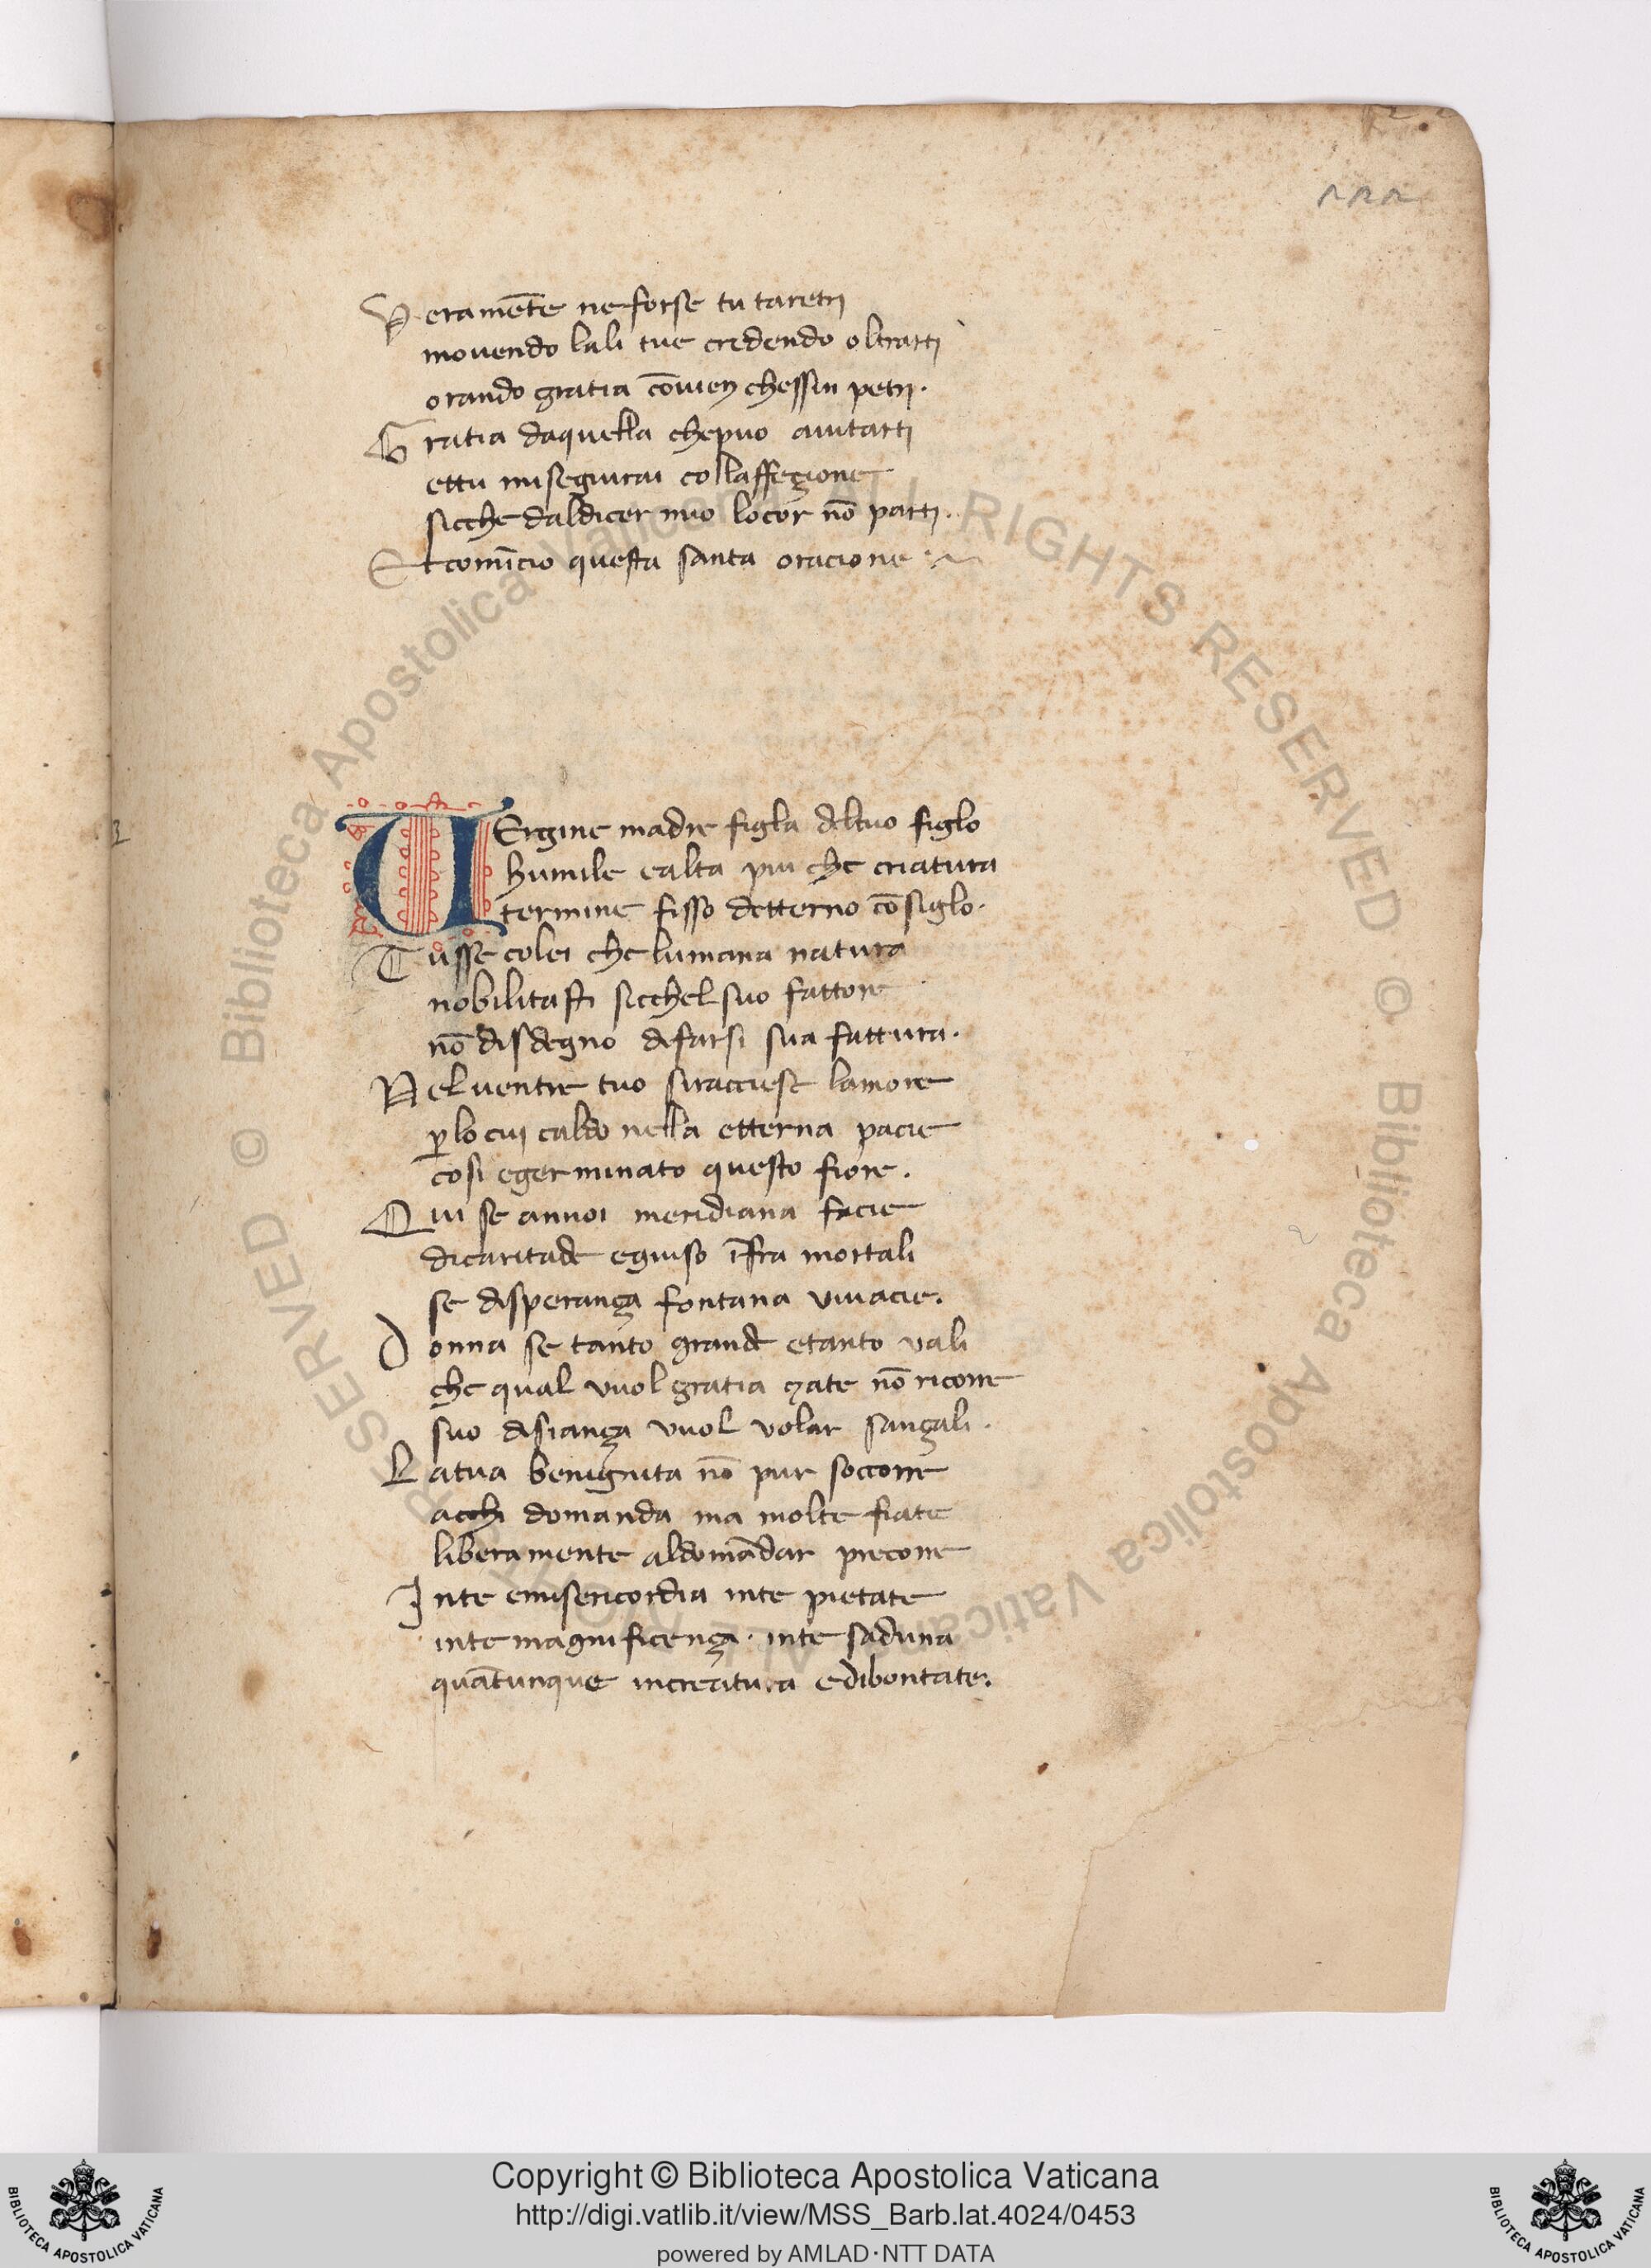 222
Veramēte ne forse tu taretri
mouendo lali tue credendo oltrarti
orando gratia cōuien chessin petri.
Gratia daquella chepuo aiutarti
ettu miseguirai collaffeçione
sicche daldicer mio locor nō parti.
Et comīcio questa santa oracione
VErgine madre figla deltuo figlo
humile ealta piu che criatura
termine fisso detterno cōsiglo.
Tusse colei che lumana natura
nobilitasti sicchel suo fattore
nō disdegno difarsi sua fattura.
Nel uentre tuo siracciese lamore
ꝑlo cui caldo nella etterna pacie
cosi egerminato questo fiore.
Qui se annoi meridiana facie
dicaritade eguiso īfra mortali
se disperança fontana viuacie.
Donna se tanto grande etanto vali
che qual vuol gratia ꝛate nō ricorre
suo disiança vuol volar sançali.
Latua benignita nō pur soccorre
acchi domanda ma molte fiate
liberamente aldomādar precorre
Inte emisericordia inte pietate
inte magnificença. inte saduna
quātunque increatura edibontate.
Copyright © Biblioteca Apostolica Vaticana
http://digi.vatlib.it/view/MSS_Barb.lat.4024/0453
powered by AMLAD·NTT DATA
BIBLIOTECA APOSTOLICA VATICANA
BIBLIOTECA APOSTOLICA VATICANA